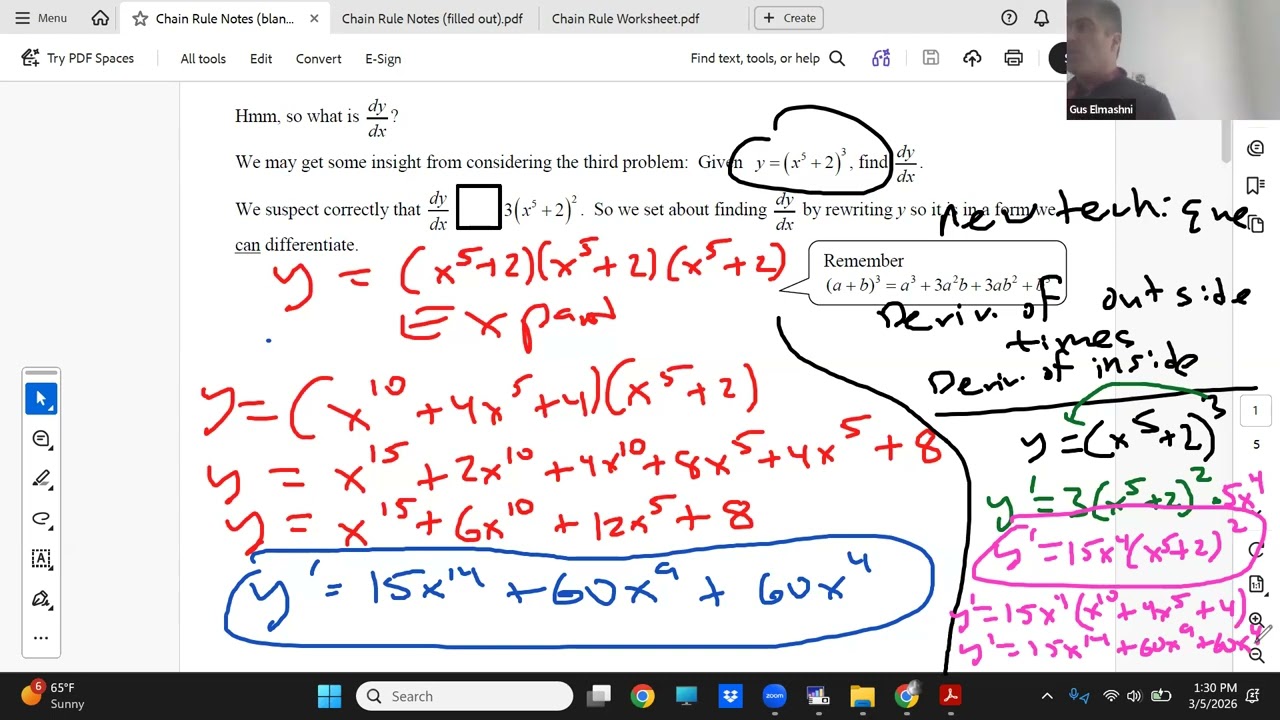 Menu
Chain Rule Notes (blan...
Chain Rule Notes (filled out).pdf
Chain Rule Worksheet.pdf
Create
Try PDF Spaces
All tools
Edit
Convert
E-Sign
Find text, tools, or help
Gus Elmashni
Hmm, so what is dy/dx?
We may get some insight from considering the third problem: Given y = (x⁵ + 2)³, find dy/dx.
We suspect correctly that dy/dx 3(x⁵ + 2)². So we set about finding dy/dx by rewriting y so it is in a form we
can differentiate.
new technique
y = (x⁵+2)(x⁵+2)(x⁵+2)
Remember
(a + b)³ = a³ + 3a²b + 3ab² +
Expand
Deriv. of outside
times
Deriv. of inside
y = (x¹⁰ + 4x⁵ + 4)(x⁵+2)
y = x¹⁵ + 2x¹⁰ + 4x¹⁰ + 8x⁵ + 4x⁵ + 8
y = x¹⁵ + 6x¹⁰ + 12x⁵ + 8
y' = 15x¹⁴ + 60x⁹ + 60x⁴
y = (x⁵+2)³
y' = 3(x⁵+2)² · 5x⁴
y' = 15x⁴(x⁵+2)²
y' = 15x⁴(x¹⁰ + 4x⁵ + 4)
y' = 15x¹⁴ + 60x⁹ + 60x⁴
1
5
1:1
6
65°F
Sunny
Search
zoom
1:30 PM
3/5/2026